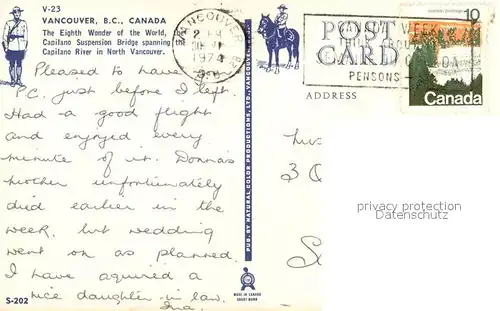 V-23
VANCOUVER, B.C., CANADA
The Eighth Wonder of the World, the
Capilano Suspension Bridge spanning the
Capilano River in North Vancouver.
Pleased to have
P.C. just before I left.
Had a good flight
and enjoyed every
minute of it. Donna's
mother unfortunately
died earlier in the
week, but wedding
went on as planned.
I have aquired a
nice daughter in law.
Ina.
S-202
PUB. BY NATURAL COLOR PRODUCTIONS, LTD., VANCOUVER, B.C.
MADE IN CANADA
VANCOUVER
1974
POST
CARD
PENSONS
ADDRESS
10
Canada
3
privacy protection
Datenschutz